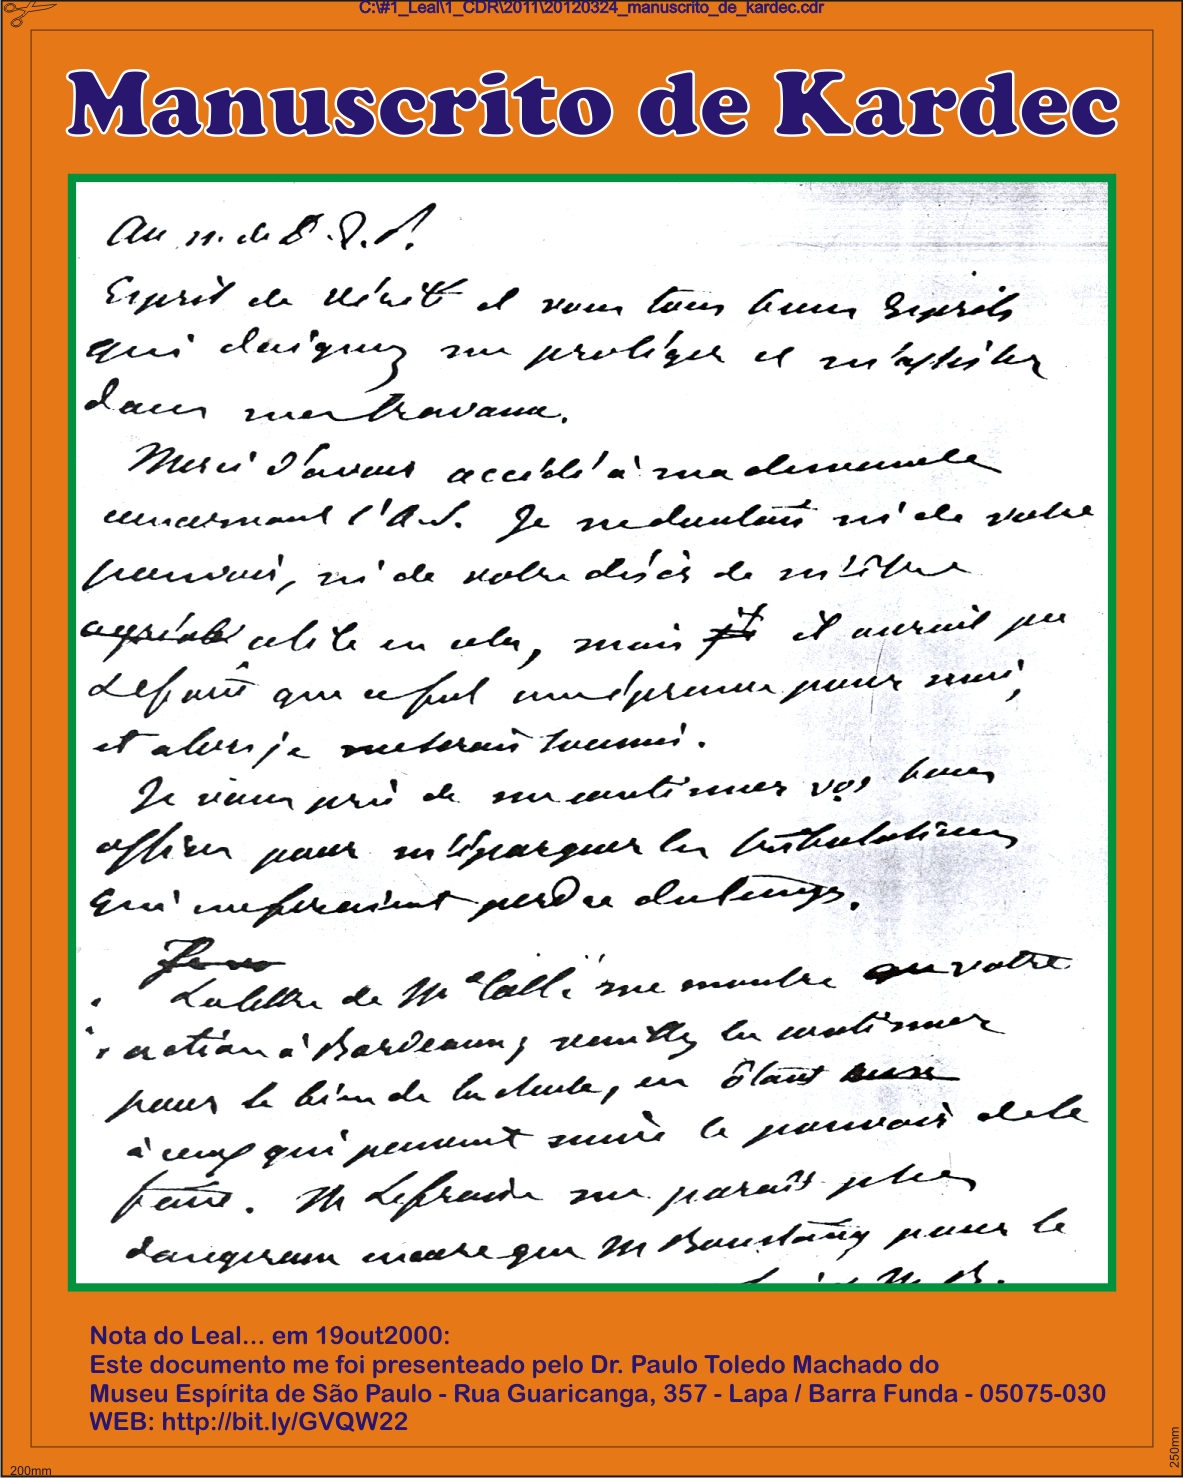 C:\#1_Leal\1_CDR\2011\20120324_manuscrito_de_kardec.cdr
Manuscrito de Kardec
Au n. de D. T. P.
Esprit de Vérité et vous tous bons Esprits
qui daignez me protéger et m'assister
dans mes travaux.
Merci d'avoir accédé à ma demande
concernant l'A. S. Je ne doutais ni de votre
pouvoir, ni de votre désir de m'être
agréable utile en cela, mais il aurait pu
se faire que ce fut une épreuve pour moi,
et alors je me serais soumis.
Je vous prie de me continuer vos bons
offices pour m'épargner les tribulations
qui me feraient perdre du temps.
La lettre de me montre que votre
action à Bordeaux; veuillez la continuer
pour le bien de la chose, en ôtant
à ceux qui peuvent nuire le pouvoir de le
faire. Mr me paraît plus
dangereux encore que Mr Roustaing pour le
M. R.
Nota do Leal... em 19out2000:
Este documento me foi presenteado pelo Dr. Paulo Toledo Machado do
Museu Espírita de São Paulo - Rua Guaricanga, 357 - Lapa / Barra Funda - 05075-030
WEB: http://bit.ly/GVQW22
200mm
250mm